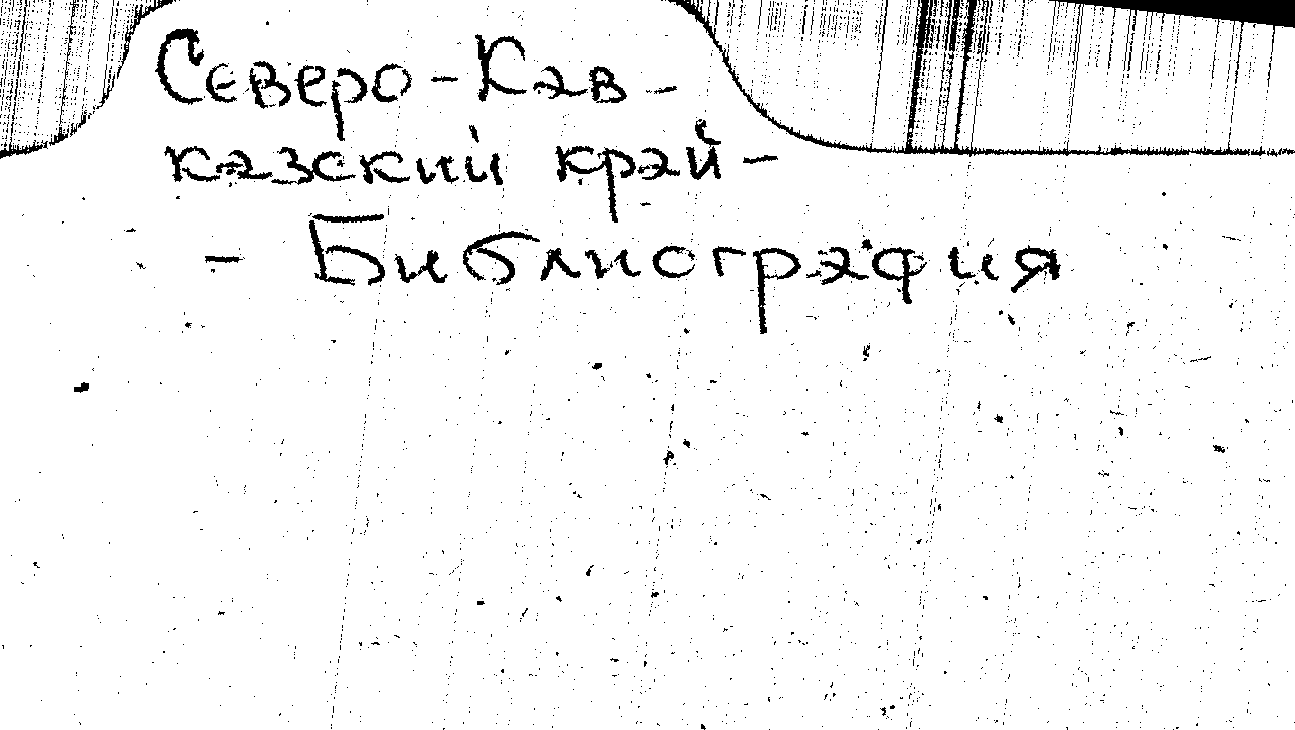 Северо-Кав-
казский край-
- Библиография